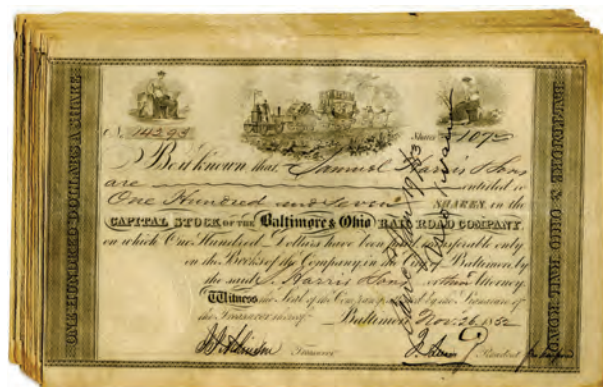 ONE HUNDRED DOLLARS A SHARE
BALTIMORE & OHIO RAIL ROAD
No. 14293
Shares 107
Be it known that Samuel Harris & Sons
are entitled to
One Hundred and Seven SHARES in the
CAPITAL STOCK OF THE Baltimore & Ohio RAIL ROAD COMPANY
on which One Hundred Dollars have been paid transferable only
on the Books of the Company in the City of Baltimore by
the said S. Harris & Sons or their Attorney
Witness the Seal of the Company the Treasurer
Baltimore Nov. 26, 1852
Treasurer
President